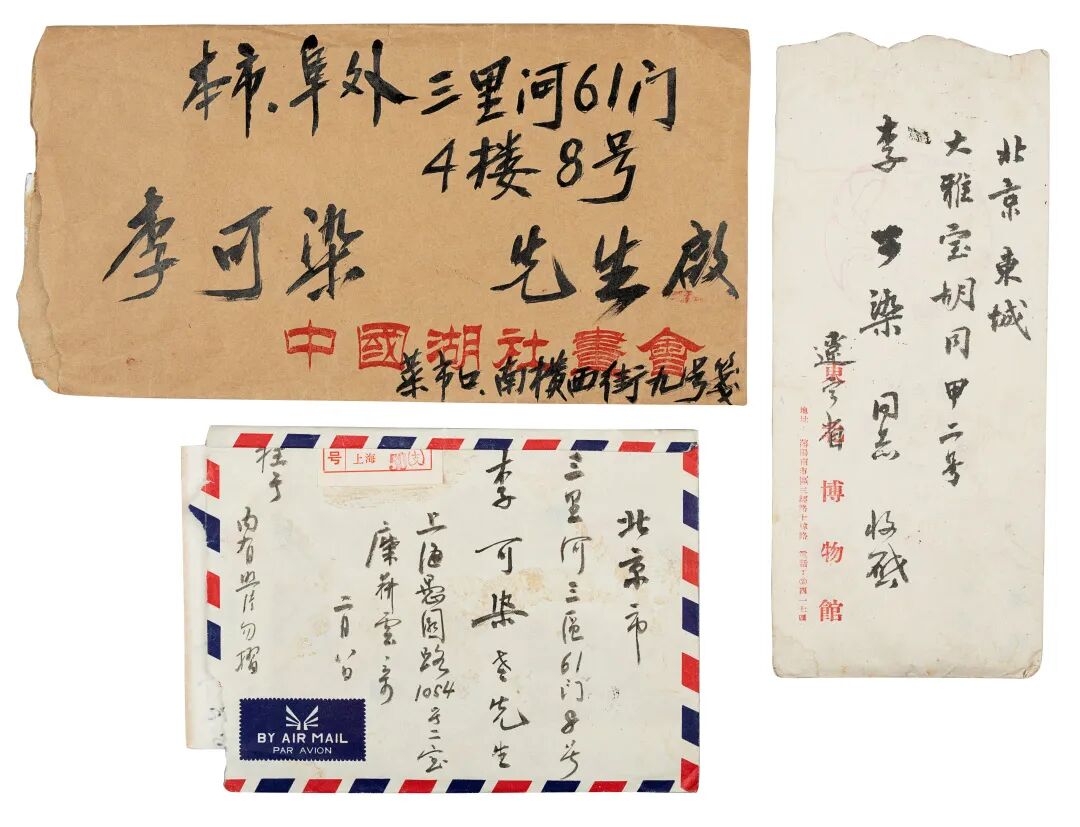 本市.阜外三里河61门
4楼8号
李可染 先生啟
中國湖社畫會
菜市口.南横西街九号笺
北京东城
大雅宝胡同甲二号
李可染同志收啟
遼宁省
博物館
北京市
三里河三區61门8号
李可染老先生
上海愚园路1054号二室
二月
内有 勿摺
号 上海
BY AIR MAIL
PAR AVION